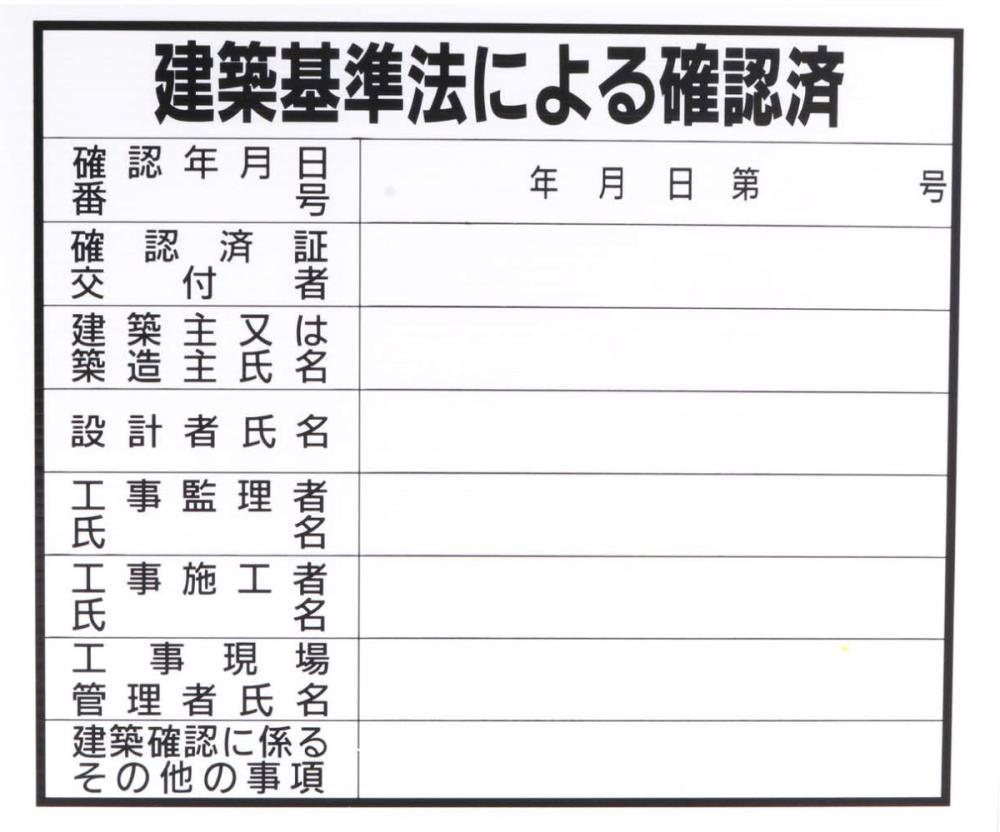 建築基準法による確認済
確認年月日
番号
年 月 日 第 号
確認済証
交付者
建築主又は
築造主氏名
設計者氏名
工事監理者
氏名
工事施工者
氏名
工事現場
管理者氏名
建築確認に係る
その他の事項